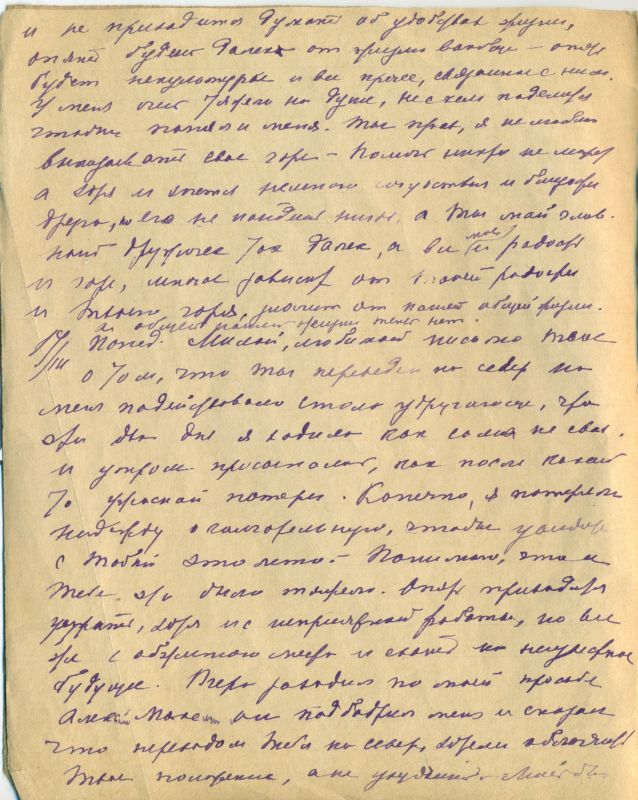 и не приходится думать об удобствах жизни,
опять будешь далек от жизни вообще – опять
будет некультурье и все прочее, связанное с ним.
У меня очень тяжело на душе, не с кем поделиться
чтобы поняли меня. Ты прав, я не люблю
высказывать свое горе – помочь никто не может
а хотя и хочется немного сочувствия и близкого
друга, но его не найдешь нигде, а ты мой глав-
ный дружочек так далек, а все мое и радость
и горе, многое зависит от твоей радости
и твоего горя, значит от нашей общей жизни.
а общей нашей жизни теперь нет.
Понед. Милый, любимый письмо твое
о том, что ты переведен на север на
меня подействовало столь удручающе, что
эти два дня я ходила как сама не своя.
и утром просыпалась, как после какой
то ужасной потери. Конечно, я потеряла
надежду, чтобы увидеться
с тобой это лето – Понимаю, что и
тебе это было тяжело. Опять приходится
уезжать, хотя и с неприятной работы, но все
же с обжитого места и опять на неизвестное
будущее. Вчера заходил по моей просьбе
Алексей Макс он подбодрил меня и сказал
что переводом тебя на север, хотели облегчить
твое положение, а не ухудшить.